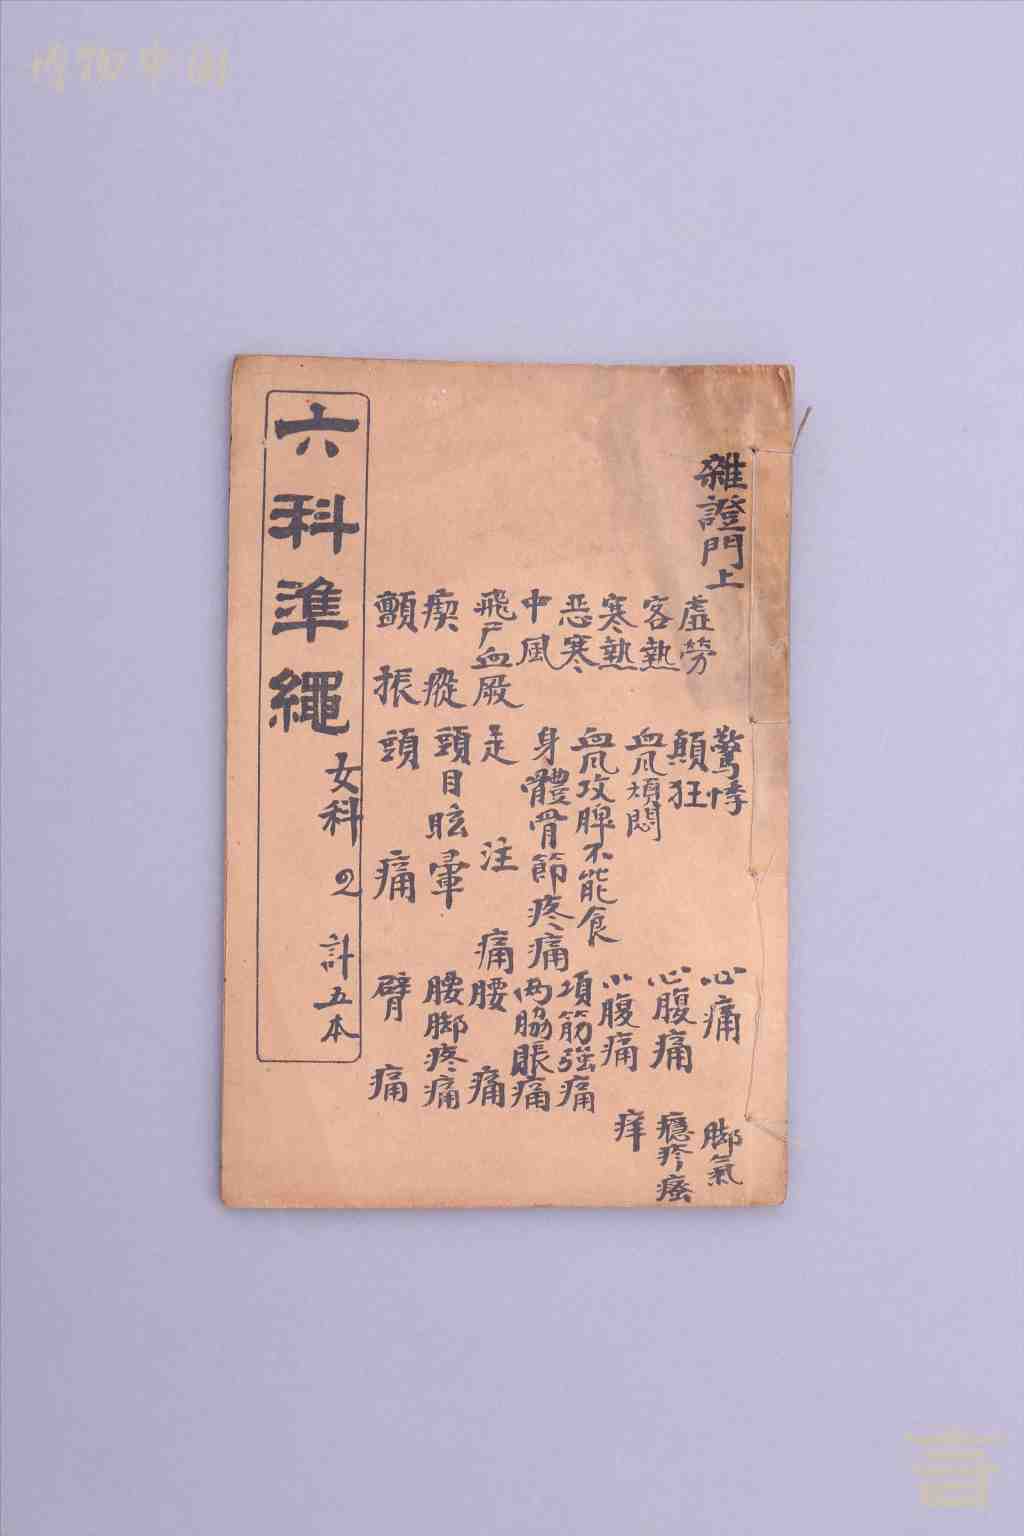 博物中国
雜證門上
虛勞
客熱
寒熱
恶寒
中風
飛尸血厥
瘈瘲
顫振
驚悸
顛狂
血風煩悶
血風攻脾不能食
身體骨節疼痛
走注痛
頭目眩暈
頭痛
心痛
心腹痛
小腹痛
項筋強痛
两脇脹痛
腰痛
腰脚疼痛
臂痛
脚氣
癮疹瘙
痒
六科準繩
女科
計五本